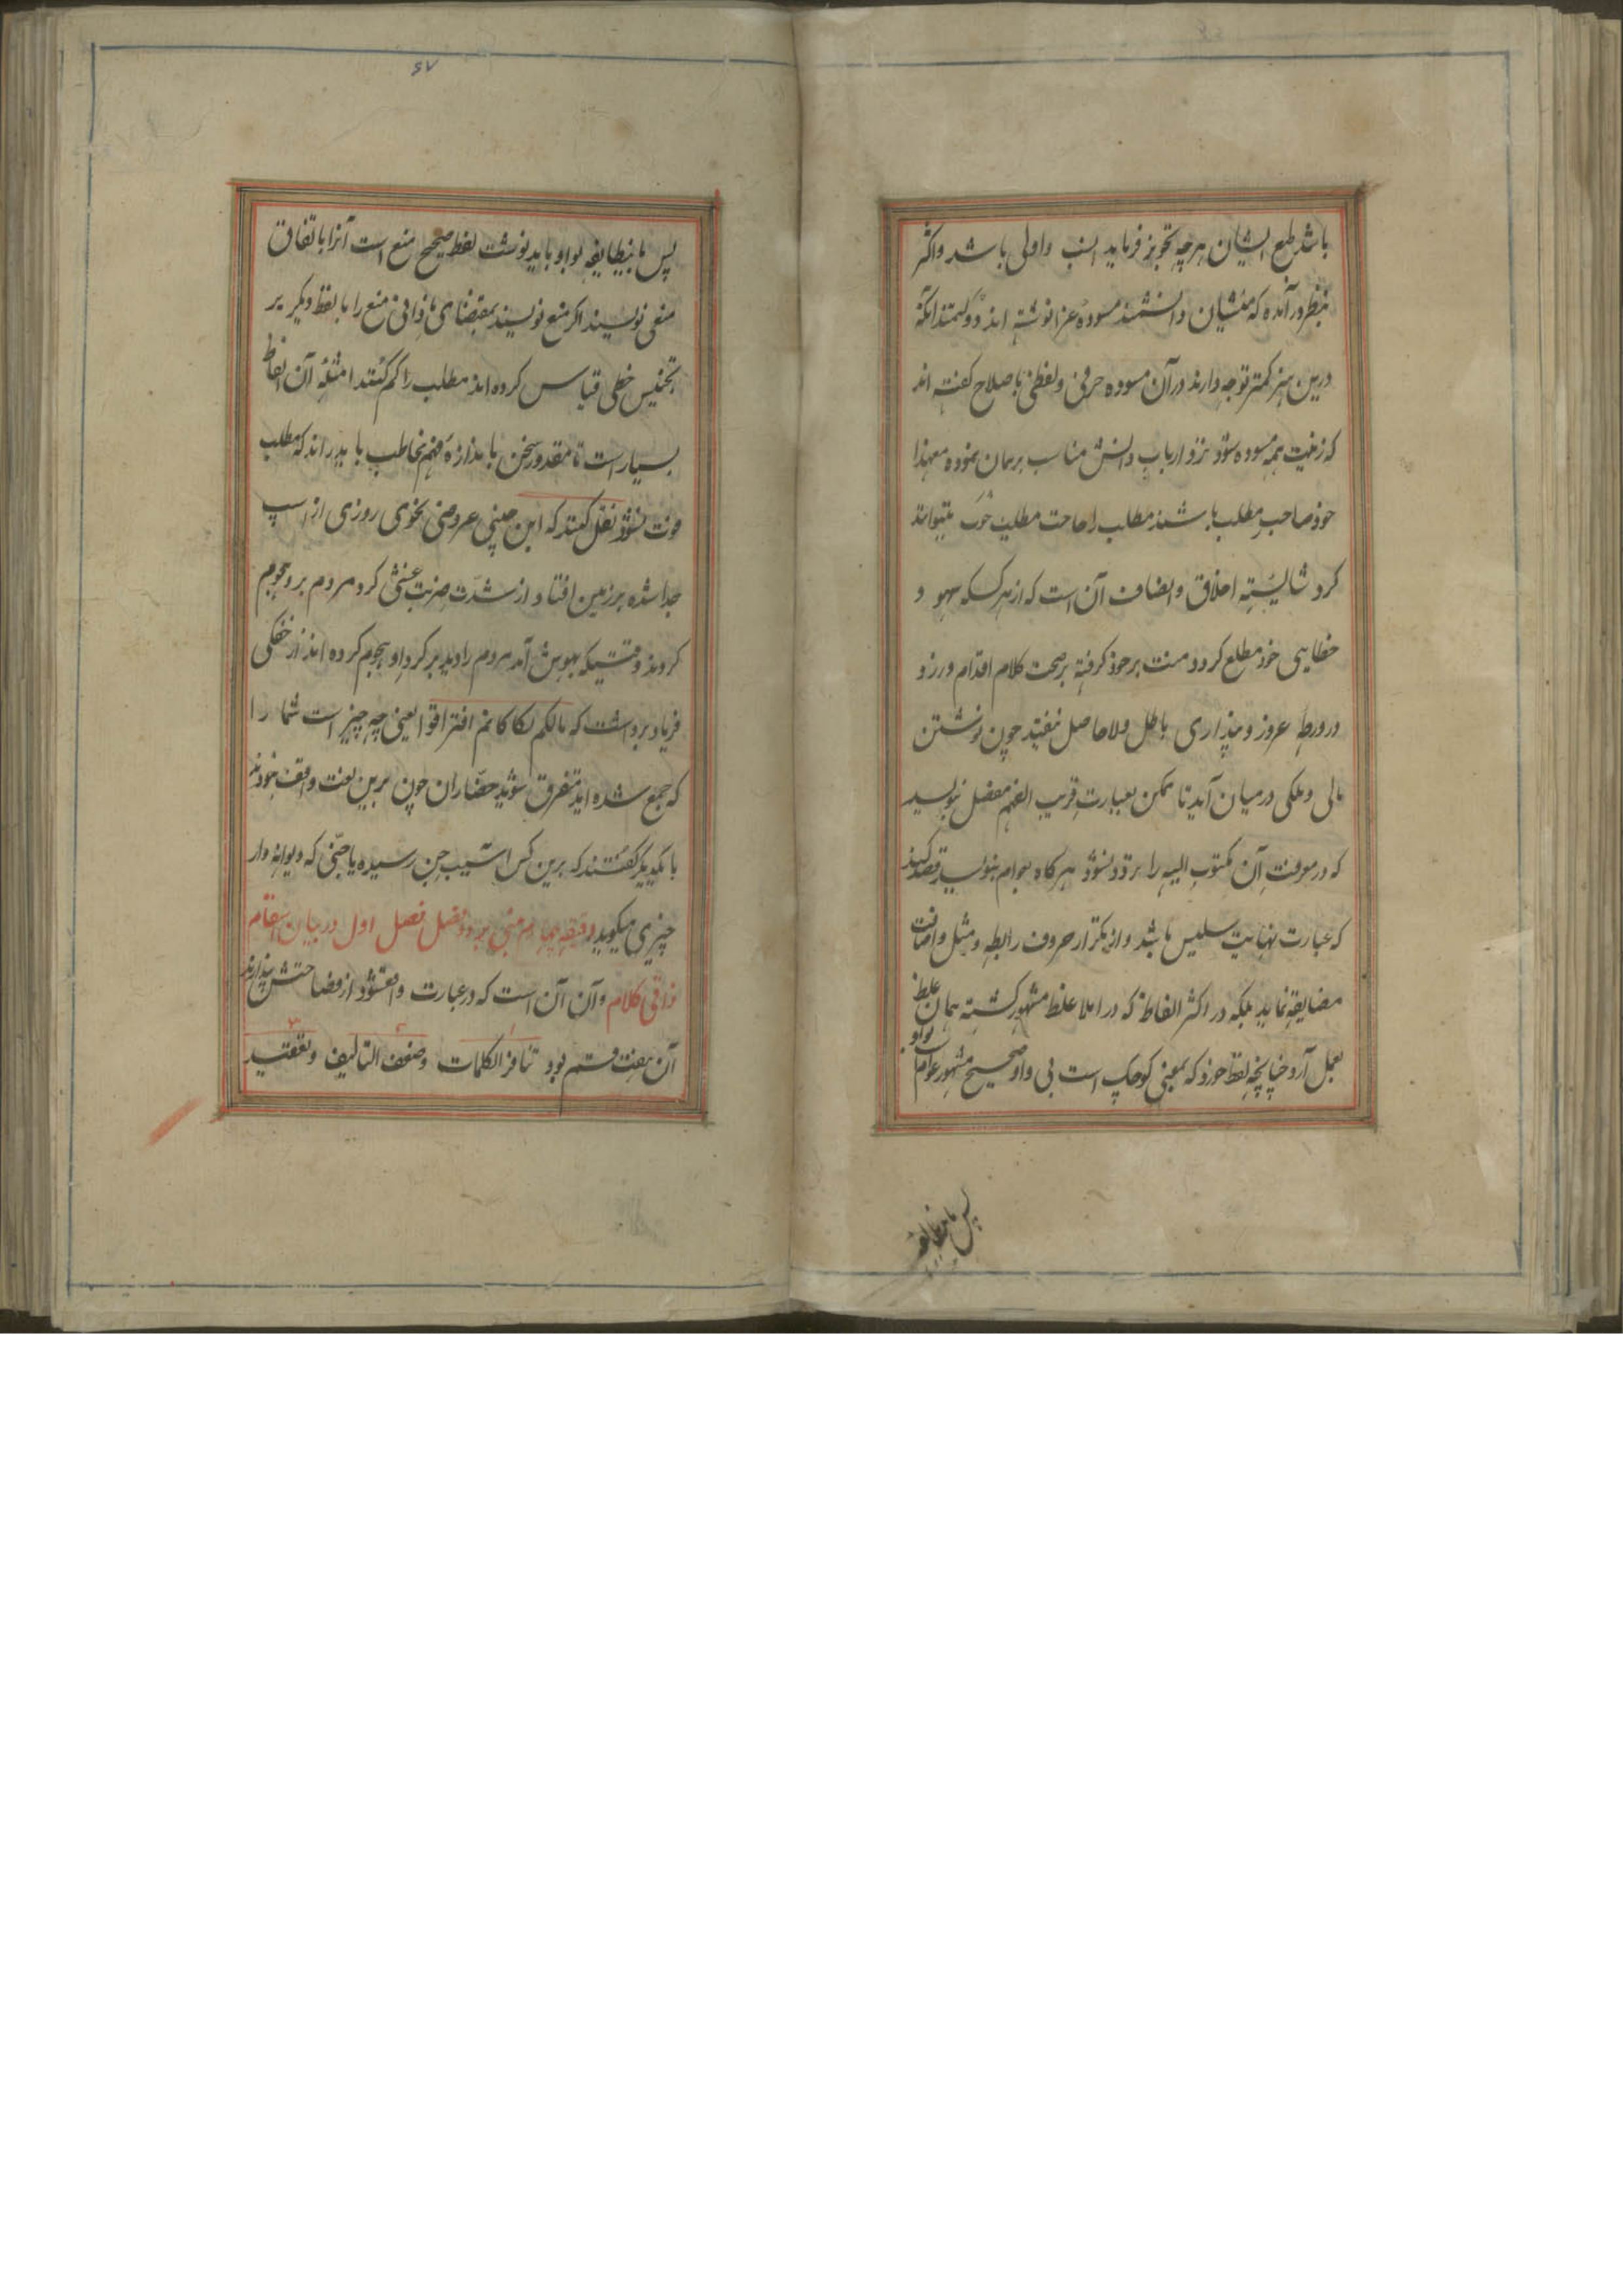 باشد طبع ایشان هرچه تجویز فرماید انسب و اولی باشد و اکثر
بنظر در آمده که منشیان دانشمند مسوده غرا نوشته اند و دولتمندانکه
درین هنر کمتر توجه دارند در آن مسوده حرفی و لفظی باصلاح گفته اند
که زینت همه مسوده شود نزد ارباب دانش مناسب برهمان نموده معهذا
خود صاحب مطلب باشند مطلب را صاحب مطلب خوب میتواند
کرد شایسته اخلاق و انصاف آن است که از هر کسکه سهو و
خطایی خود مطلع گردد منت بر خود گرفته بر صحت کلام اقدام ورزد و
در ورطه غرور و پنداری باطل و لاحاصل نیفتد چون نوشتن
مالی و ملکی درمیان آید تا ممکن بعبارت قریب الفهم مفصل نویسد
که در معرفت آن مکتوب الیه را تردد نشود هرگاه بعوام بنویسد قصد کند
که عبارت نهایت سلیس باشد و از تکرار حروف رابطه و مثل و اضافت
مضایقه نماید بلکه در اکثر الفاظ که در املا غلط مشهور گشته همان غلط
بعمل آرد چنانچه لفظ خورد که بمعنی کوچک است بی واو صحیح مشهور عوام بواو
پس باینطایفه
۶۷
پس باینطایفه بواو باید نوشت لفظ صحیح منع است آنرا باتفاق
منعی نویسند اگر منع نویسند بمقتضای نادانی منع را با لفظ دیگر بر
تجنیس خطی قیاس کرده اند مطلب را گم کنند امثله آن الفاظ
بسیار است تا مقدور سخن باندازه فهم مخاطب باید راند که مطلب
فوت نشود نقل کنند که ابن جینی عروضی نحوی روزی از اسپ
جدا شده بر زمین افتاد از شدت ضربت غشی کرد مردم برو هجوم
کردند وقتیکه بهوش آمد مردم را دید بر گرد او هجوم کرده اند از خفگی
فریاد برداشت که مالکم تکاکاتم افترقوا یعنی چه چیز است شما را
که جمع شده اید متفرق شوید حضاران چون برین لغت واقف نبودند
با یکدیگر گفتند که برین کس آسیب جن رسیده یا جنی که دیوانه وار
چیزی میگوید دقیقه چهارم مبنی بر دو فصل فصل اول در بیان اسقام
ذاتی کلام و آن آن است که در عبارت واقعشود از فصاحتش بیندازند
آن هفت قسم بود تنافر الکلمات و ضعف التالیف و تعقید